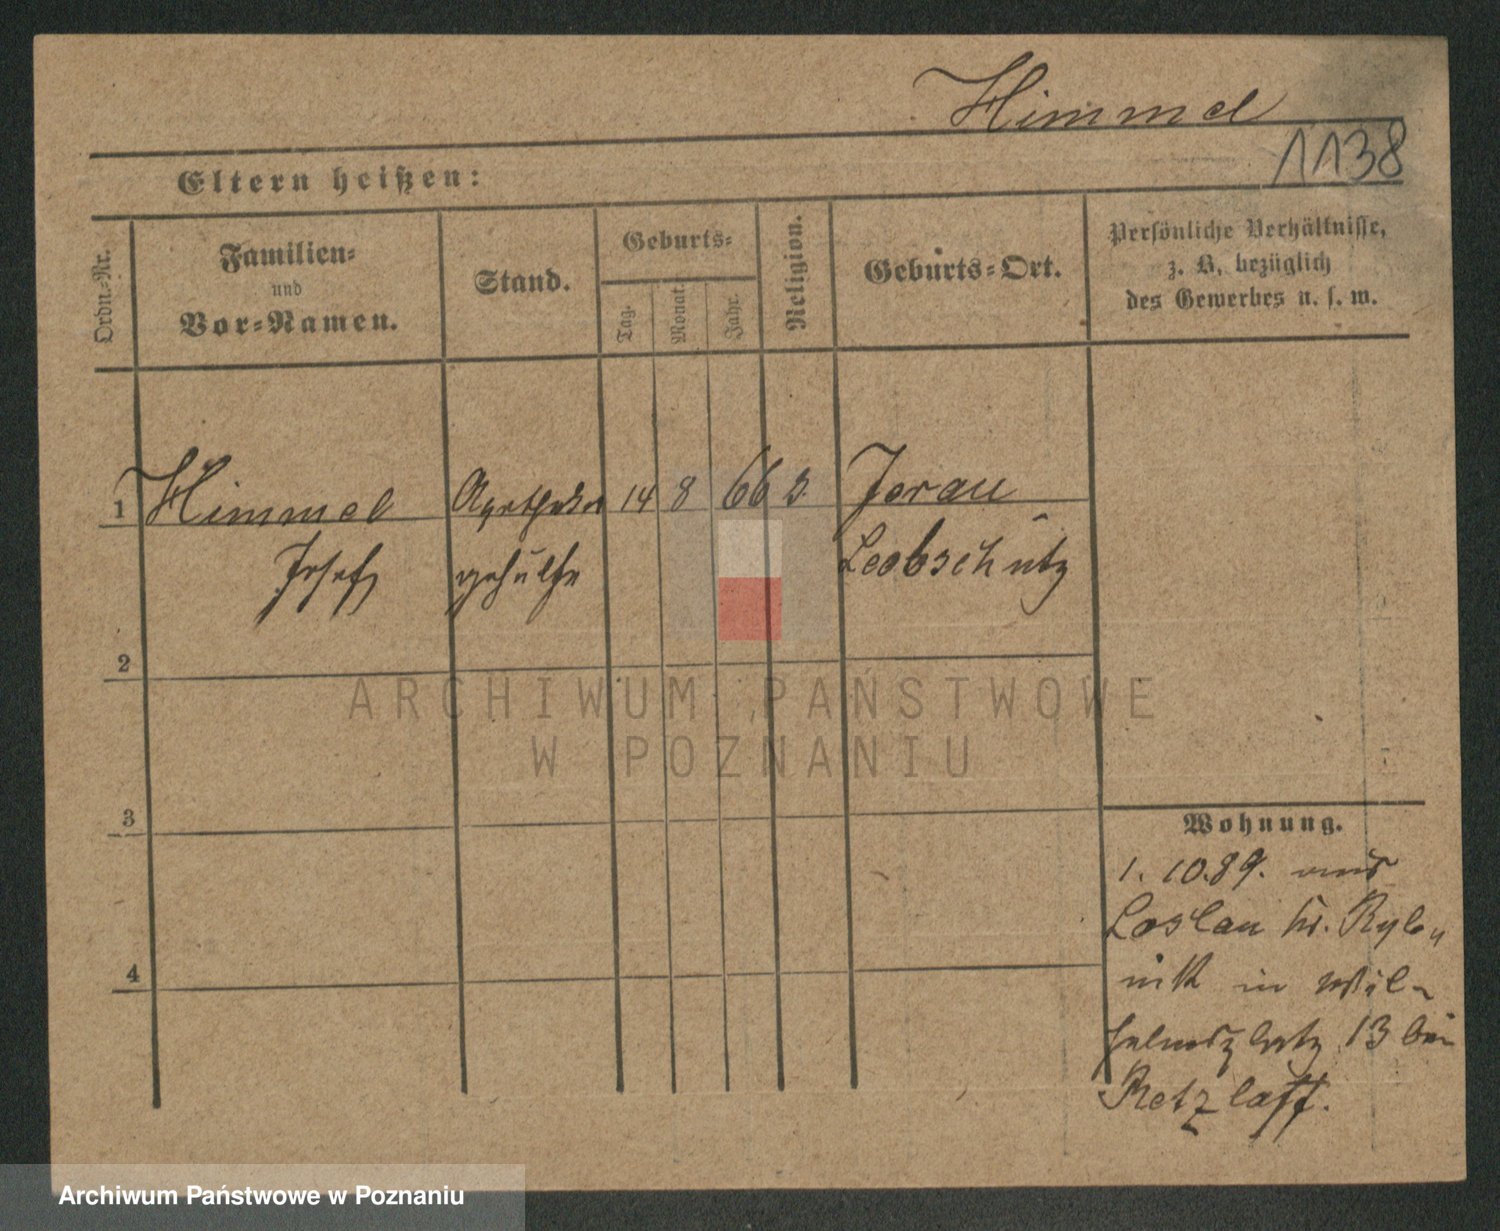 Himmel
1138
Eltern heißen:
Ordn.-Nr.
Familien-
und
Vor-Namen.
Stand.
Geburts-
Tag.
Monat.
Jahr.
Religion.
Geburts-Ort.
Persönliche Verhältnisse,
z. B. bezüglich
des Gewerbes u. s. w.
1 Himmel Apotheker 14 8 66 Jerau
Josef gehülfe Leobschütz
2
3
4
Wohnung.
1. 10.89. aus
Loslau Kr. Ryb-
nik in Wil-
helmsplatz 13 bei
Retzlaff.
ARCHIWUM PAŃSTWOWE
W POZNANIU
Archiwum Państwowe w Poznaniu